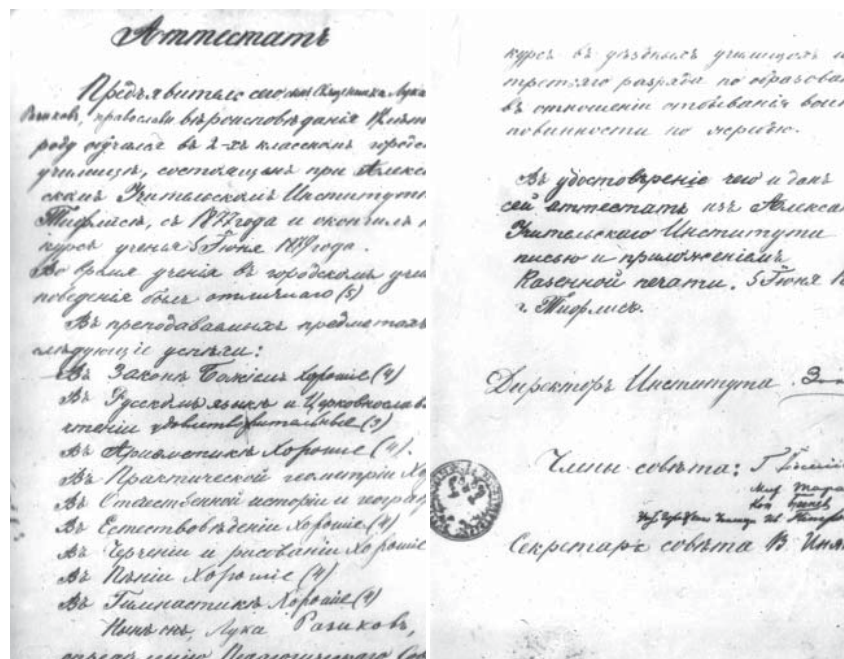 Аттестатъ
Предъявитель сего сынъ Священника Лука
православнаго вѣроисповѣданія
роду обучался въ 2-хъ классномъ городс
училищѣ, состоящемъ при Алекса
скомъ Учительскомъ Институтѣ
Тифлисъ, съ 1877 года и окончилъ
курсъ ученья 5 Іюня года.
Во время ученія въ городскомъ учи
поведенія былъ отличнаго (5)
Въ преподаваемыхъ предметахъ
слѣдующіе успѣхи:
Въ Законѣ Божіемъ хорошіе (4)
Въ Русскомъ языкѣ и Церковнослав
чтеніи удовлетворительные (3)
Въ Ариѳметикѣ Хорошіе (4).
Въ Практической геометріи Хо
Въ Отечественной исторіи и геогра
Въ Естествовѣденіи Хорошіе (4)
Въ Черченіи и рисованіи Хорошіе
Въ Пѣніи Хорошіе (4)
Въ Гимнастикѣ Хорошіе (4)
Лука Разиковъ,
Педагогическаго Со
курсъ въ уѣздныхъ училищахъ и
третьяго разряда по образова
въ отношеніи отбыванія воин
повинности по жеребью.
Въ удостовѣреніе чего и данъ
сей аттестатъ изъ Алекса
Учительскаго Института
писью и приложеніемъ
Казенной печати. 5 Іюня 18
г. Тифлисъ.
Директоръ Института
Члены совѣта: Г.
Секретарь совѣта В.